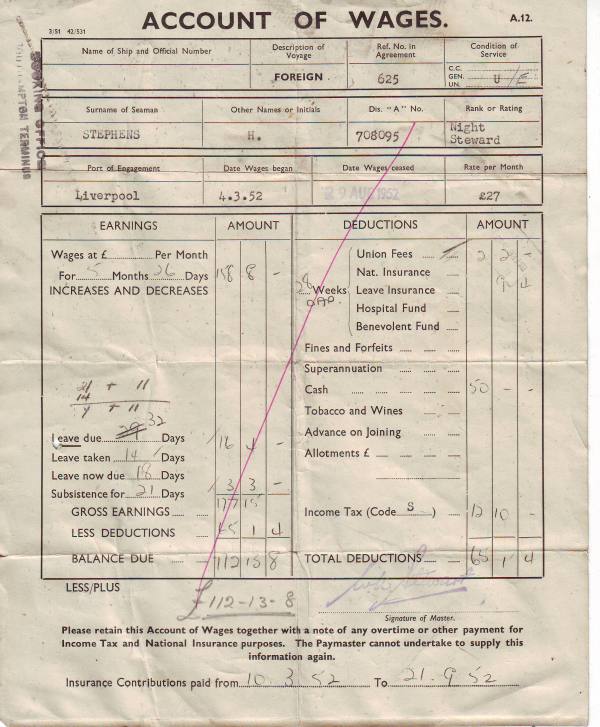 ACCOUNT OF WAGES.
A.12.
3/51 42/531
BOOKING OFFICE
SOUTHAMPTON TERMINUS
Name of Ship and Official Number
Description of Voyage
Ref. No. in Agreement
Condition of Service
FOREIGN
625
C.C.
GEN. U/E
UN.
Surname of Seaman
Other Names or Initials
Dis. "A" No.
Rank or Rating
STEPHENS
H.
708095
Night Steward
Port of Engagement
Date Wages began
Date Wages ceased
Rate per Month
Liverpool
4.3.52
29 AUG 1952
£27
EARNINGS AMOUNT DEDUCTIONS AMOUNT
Wages at £ Per Month
For 5 Months 26 Days 158 8 -
INCREASES AND DECREASES
Union Fees 2 2 -
Nat. Insurance
28 Weeks Leave Insurance 9 4
Hospital Fund
Benevolent Fund
Fines and Forfeits
Superannuation
Cash 50 - -
Tobacco and Wines
Advance on Joining
Allotments £
21 + 11
14
7 + 11
Leave due 29 32 Days
Leave taken 14 Days 16 4 -
Leave now due 18 Days
Subsistence for 21 Days 3 3 -
GROSS EARNINGS 177 15
Income Tax (Code S) 12 10 -
LESS DEDUCTIONS 65 1 4
BALANCE DUE 112 13 8
TOTAL DEDUCTIONS 65 1 4
LESS/PLUS
£112-13-8
Signature of Master.
Please retain this Account of Wages together with a note of any overtime or other payment for
Income Tax and National Insurance purposes. The Paymaster cannot undertake to supply this
information again.
Insurance Contributions paid from 10 3 52 To 21.9 52